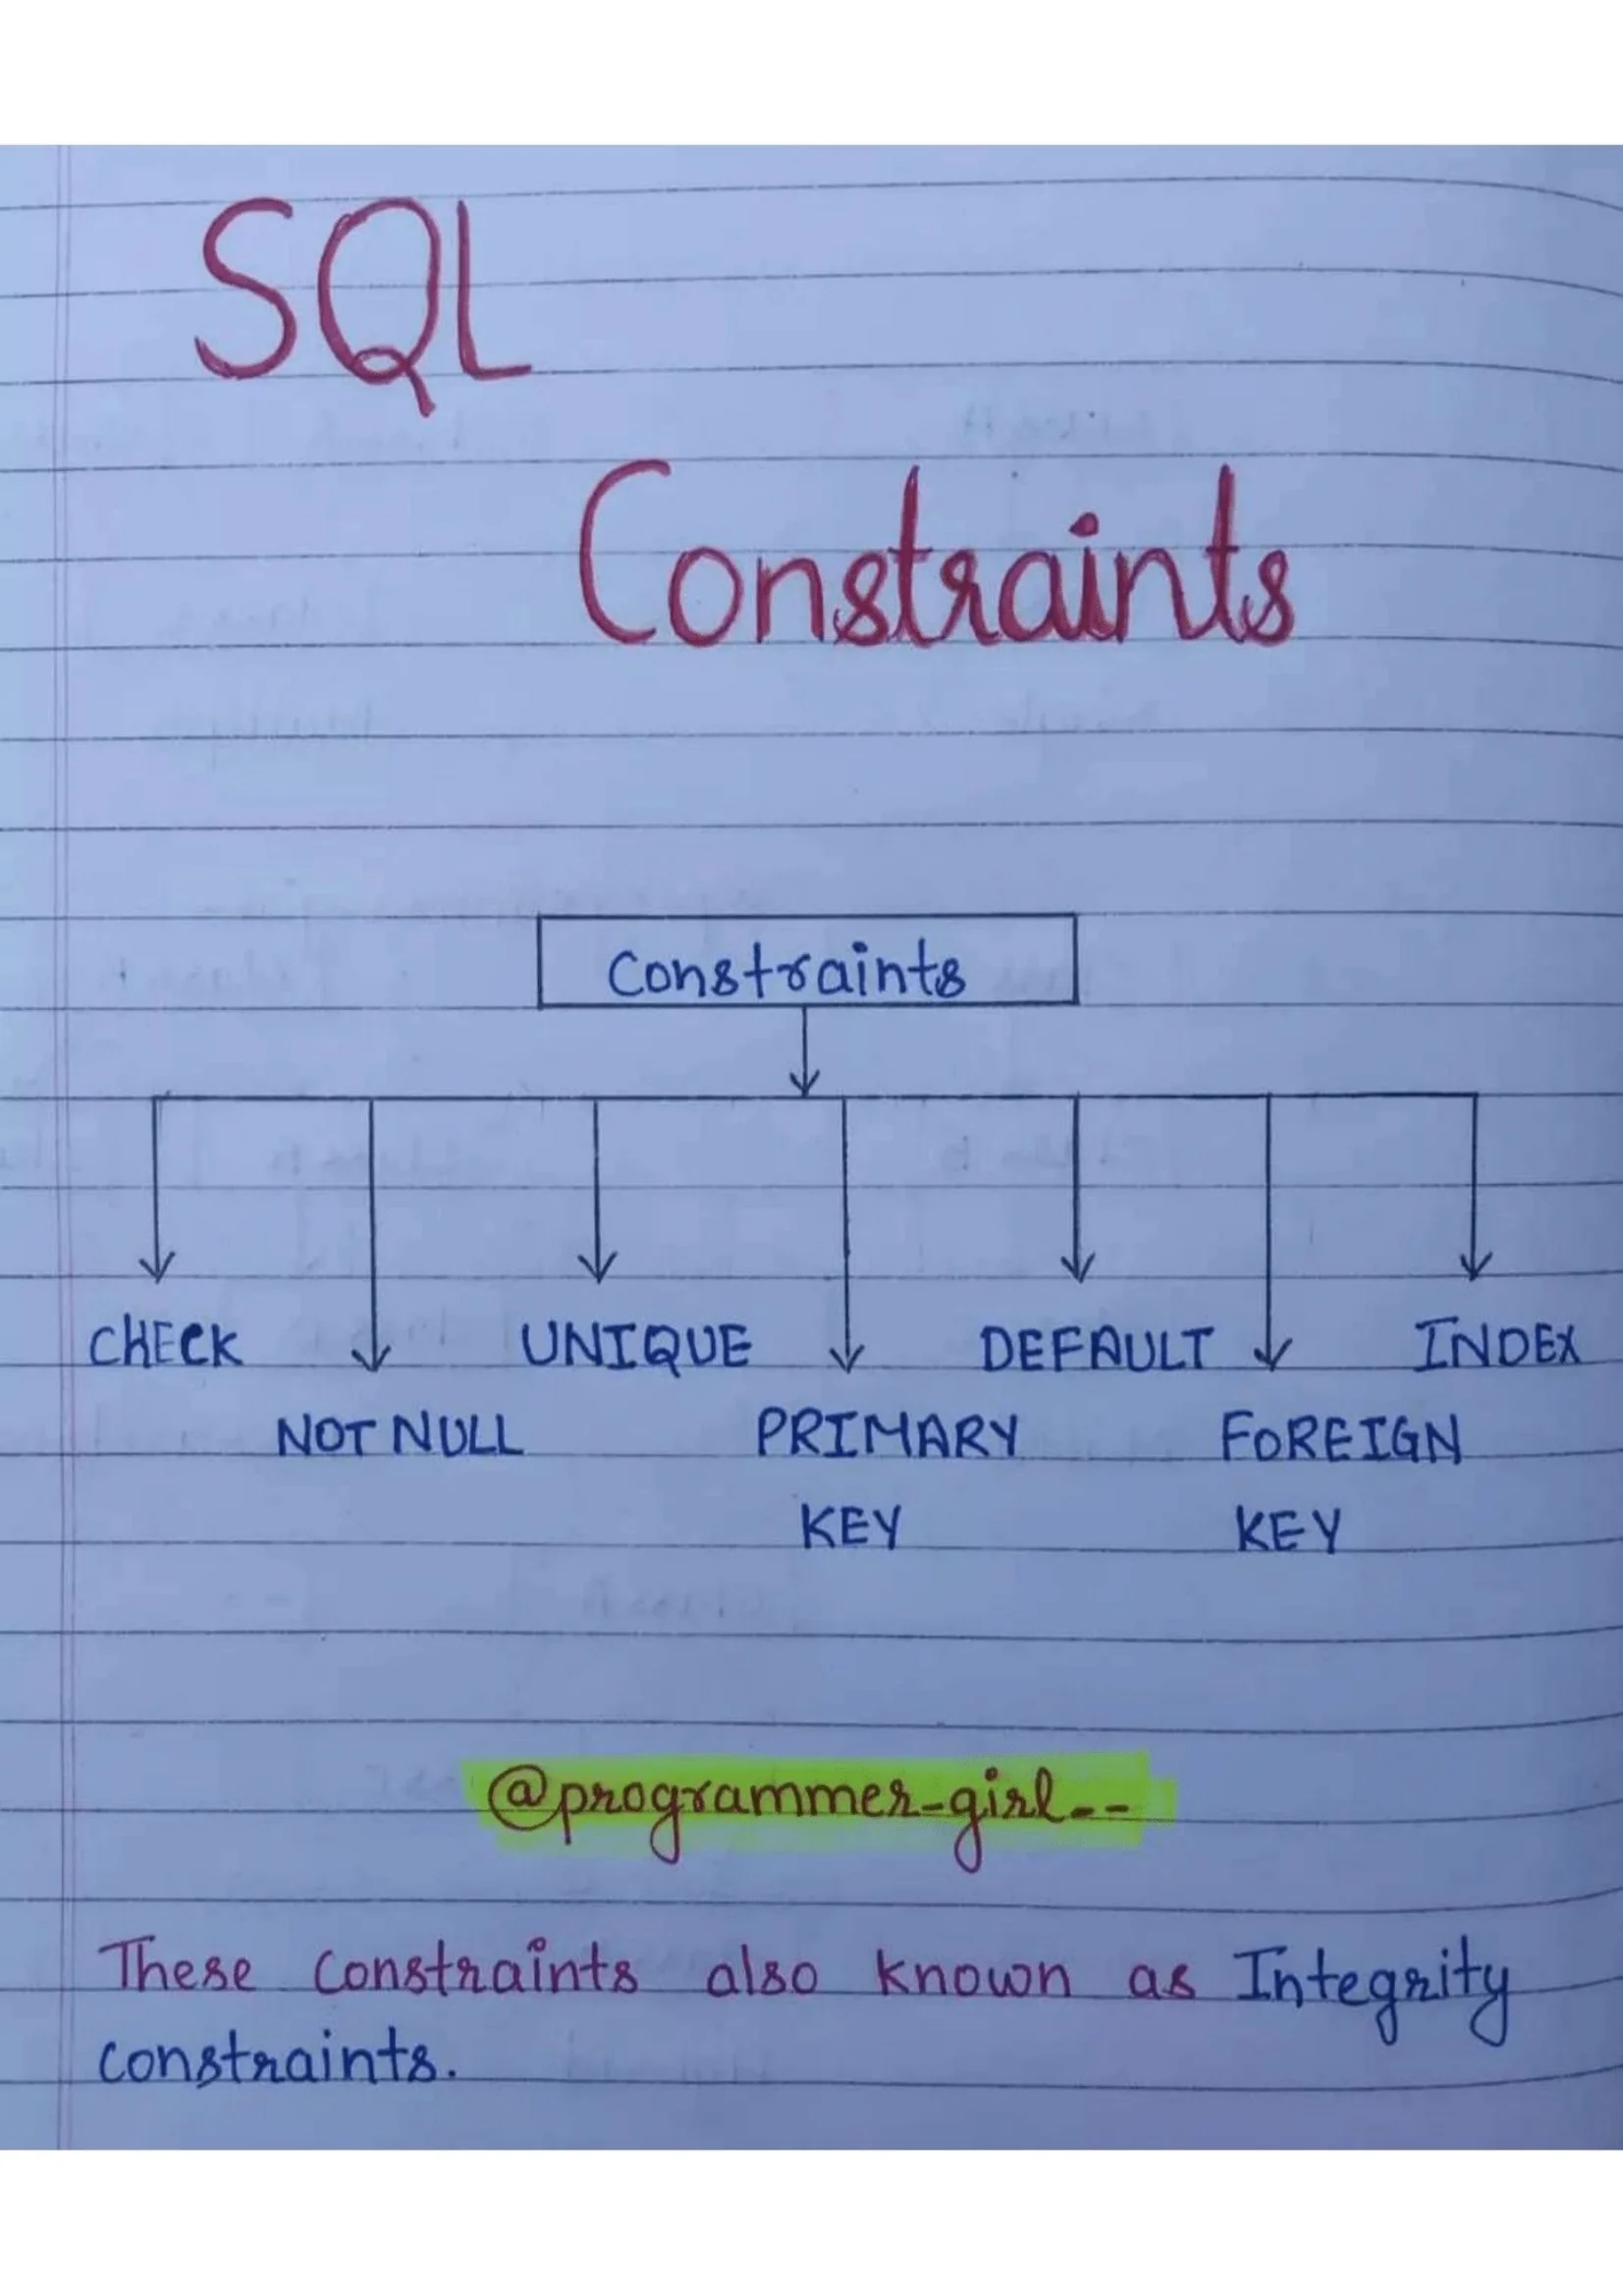 SQL
Constraints
Constraints
CHECK UNIQUE DEFAULT INDEX
NOT NULL PRIMARY FOREIGN
KEY KEY
@programmer-girl--
These constraints also known as Integrity
constraints.